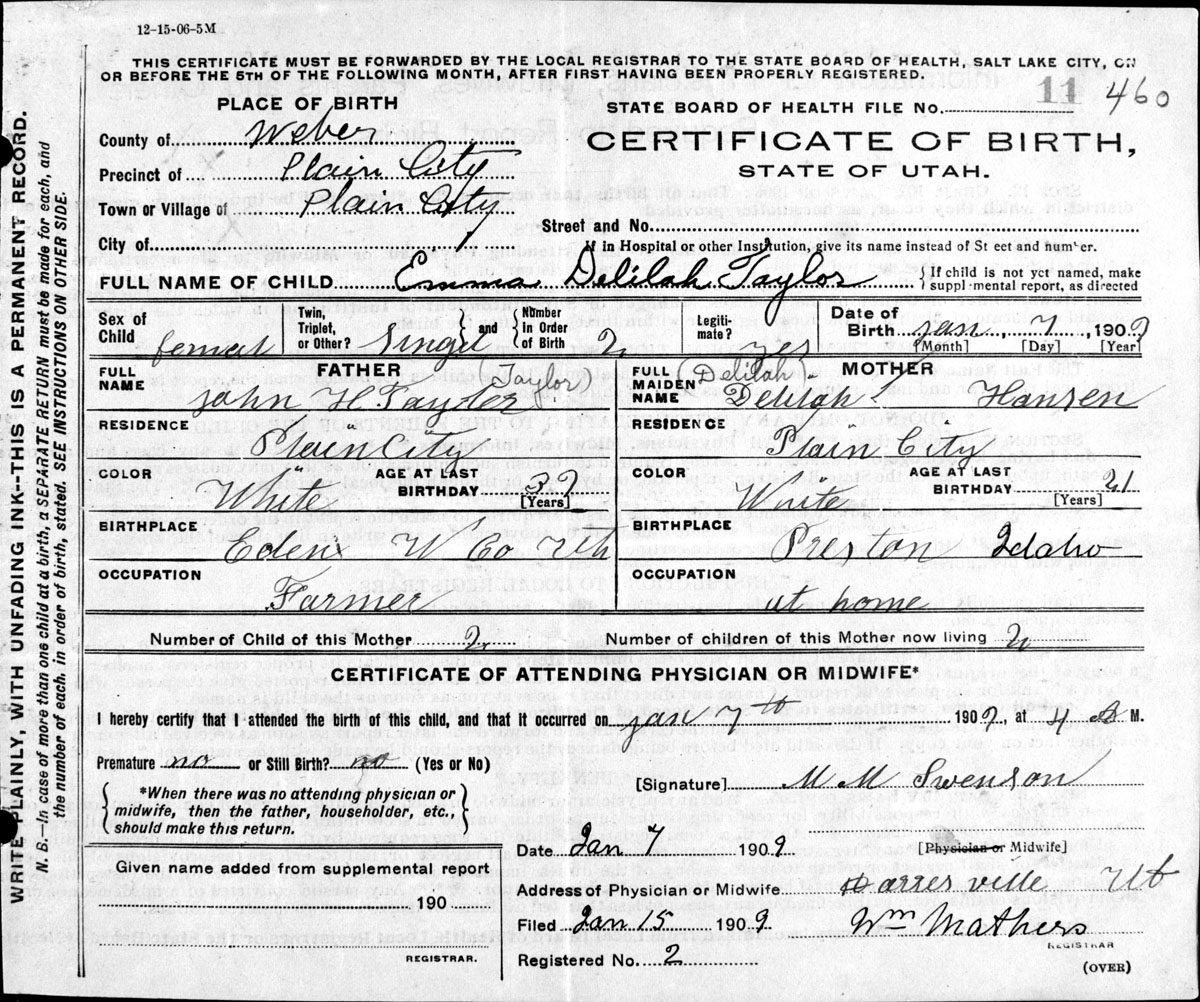 12-15-06-5M
THIS CERTIFICATE MUST BE FORWARDED BY THE LOCAL REGISTRAR TO THE STATE BOARD OF HEALTH, SALT LAKE CITY, ON
OR BEFORE THE 5TH OF THE FOLLOWING MONTH, AFTER FIRST HAVING BEEN PROPERLY REGISTERED.
WRITE PLAINLY, WITH UNFADING INK--THIS IS A PERMANENT RECORD.
N. B.--In case of more than one child at a birth, a SEPARATE RETURN must be made for each, and
the number of each, in order of birth, stated. SEE INSTRUCTIONS ON OTHER SIDE.
PLACE OF BIRTH
County of Weber
Precinct of Plain City
Town or Village of Plain City
City of
STATE BOARD OF HEALTH FILE No. 11 460
CERTIFICATE OF BIRTH,
STATE OF UTAH.
Street and No.
If in Hospital or other Institution, give its name instead of St eet and number.
FULL NAME OF CHILD Emma Delilah Taylor
If child is not yet named, make
suppl mental report, as directed
Sex of Child femal
Twin, Triplet, or Other? Singel and Number in Order of Birth 2
Legitimate? yes
Date of Birth Jan 7 1909
[Month] [Day] [Year]
FATHER
FULL NAME John H Taylor (Taylor)
RESIDENCE Plain City
COLOR White AGE AT LAST BIRTHDAY 37 [Years]
BIRTHPLACE Eden W Co Uth
OCCUPATION Farmer
MOTHER
FULL MAIDEN NAME (Delilah) Delilah Hansen
RESIDENCE Plain City
COLOR White AGE AT LAST BIRTHDAY 21 [Years]
BIRTHPLACE Preston Idaho
OCCUPATION at home
Number of Child of this Mother 2 Number of children of this Mother now living 2
CERTIFICATE OF ATTENDING PHYSICIAN OR MIDWIFE*
I hereby certify that I attended the birth of this child, and that it occurred on Jan 7th 1909, at 4 M.
Premature no or Still Birth? no (Yes or No)
*When there was no attending physician or
midwife, then the father, householder, etc.,
should make this return.
[Signature] M M Swenson
Date Jan 7 1909 [Physician or Midwife]
Address of Physician or Midwife Harrisville Ut
Filed Jan 15 1909 Wm Mathers
REGISTRAR
Registered No. 2
(OVER)
Given name added from supplemental report
190
REGISTRAR.